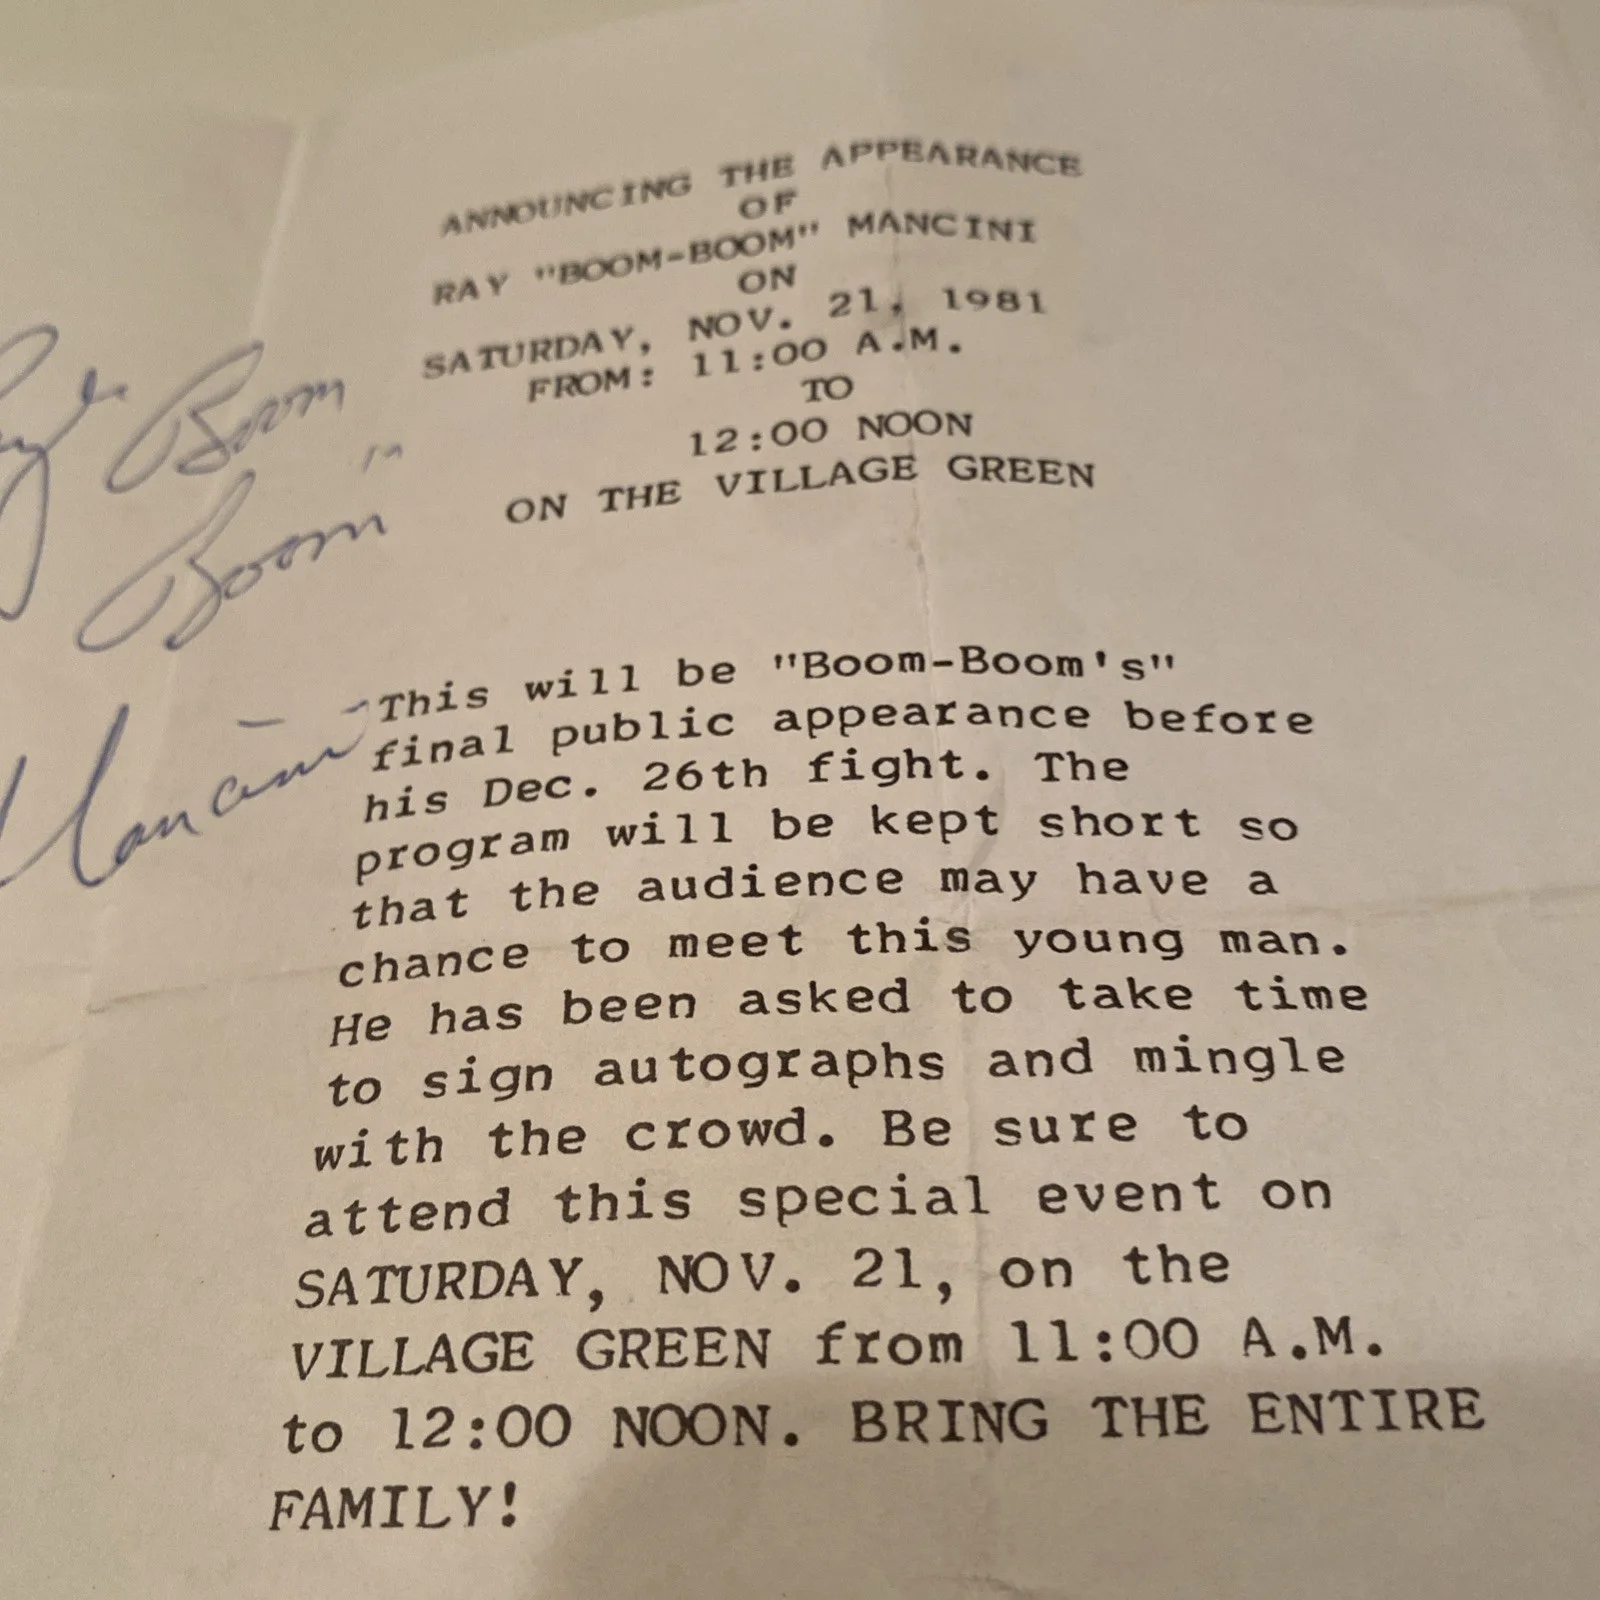 ANNOUNCING THE APPEARANCE
OF
RAY "BOOM-BOOM" MANCINI
ON
SATURDAY, NOV. 21, 1981
FROM: 11:00 A.M.
TO
12:00 NOON
ON THE VILLAGE GREEN
Ray " Boom
Boom "
Mancini
This will be "Boom-Boom's"
final public appearance before
his Dec. 26th fight. The
program will be kept short so
that the audience may have a
chance to meet this young man.
He has been asked to take time
to sign autographs and mingle
with the crowd. Be sure to
attend this special event on
SATURDAY, NOV. 21, on the
VILLAGE GREEN from 11:00 A.M.
to 12:00 NOON. BRING THE ENTIRE
FAMILY!